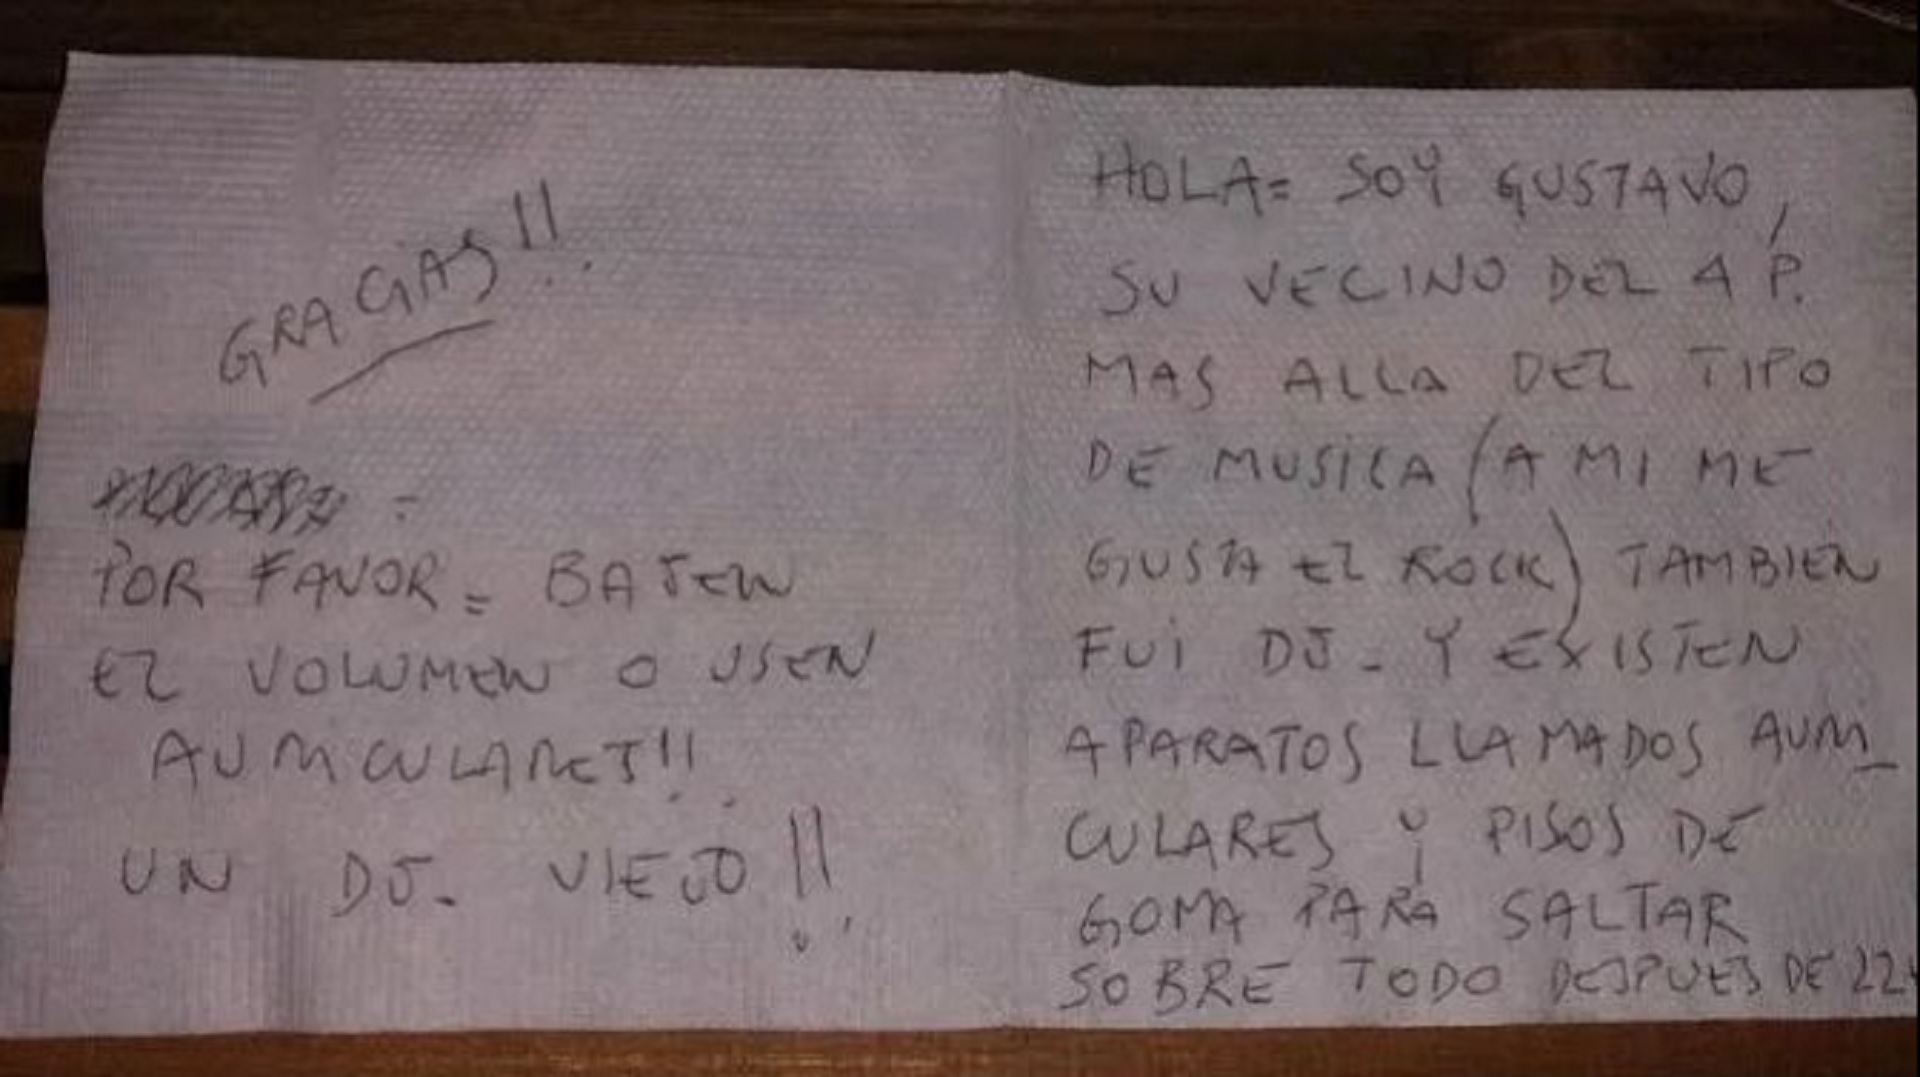 HOLA= SOY GUSTAVO,
SU VECINO DEL 4 P.
MAS ALLA DEL TIPO
DE MUSICA (A MI ME
GUSTA EL ROCK) TAMBIEN
FUI DJ- Y EXISTEN
APARATOS LLAMADOS AURI_
CULARES Y PISOS DE
GOMA PARA SALTAR
SOBRE TODO DESPUES DE 22
GRACIAS!!
POR FAVOR= BAJEN
EL VOLUMEN O USEN
AURICULARES!!
UN DJ- VIEJO!!